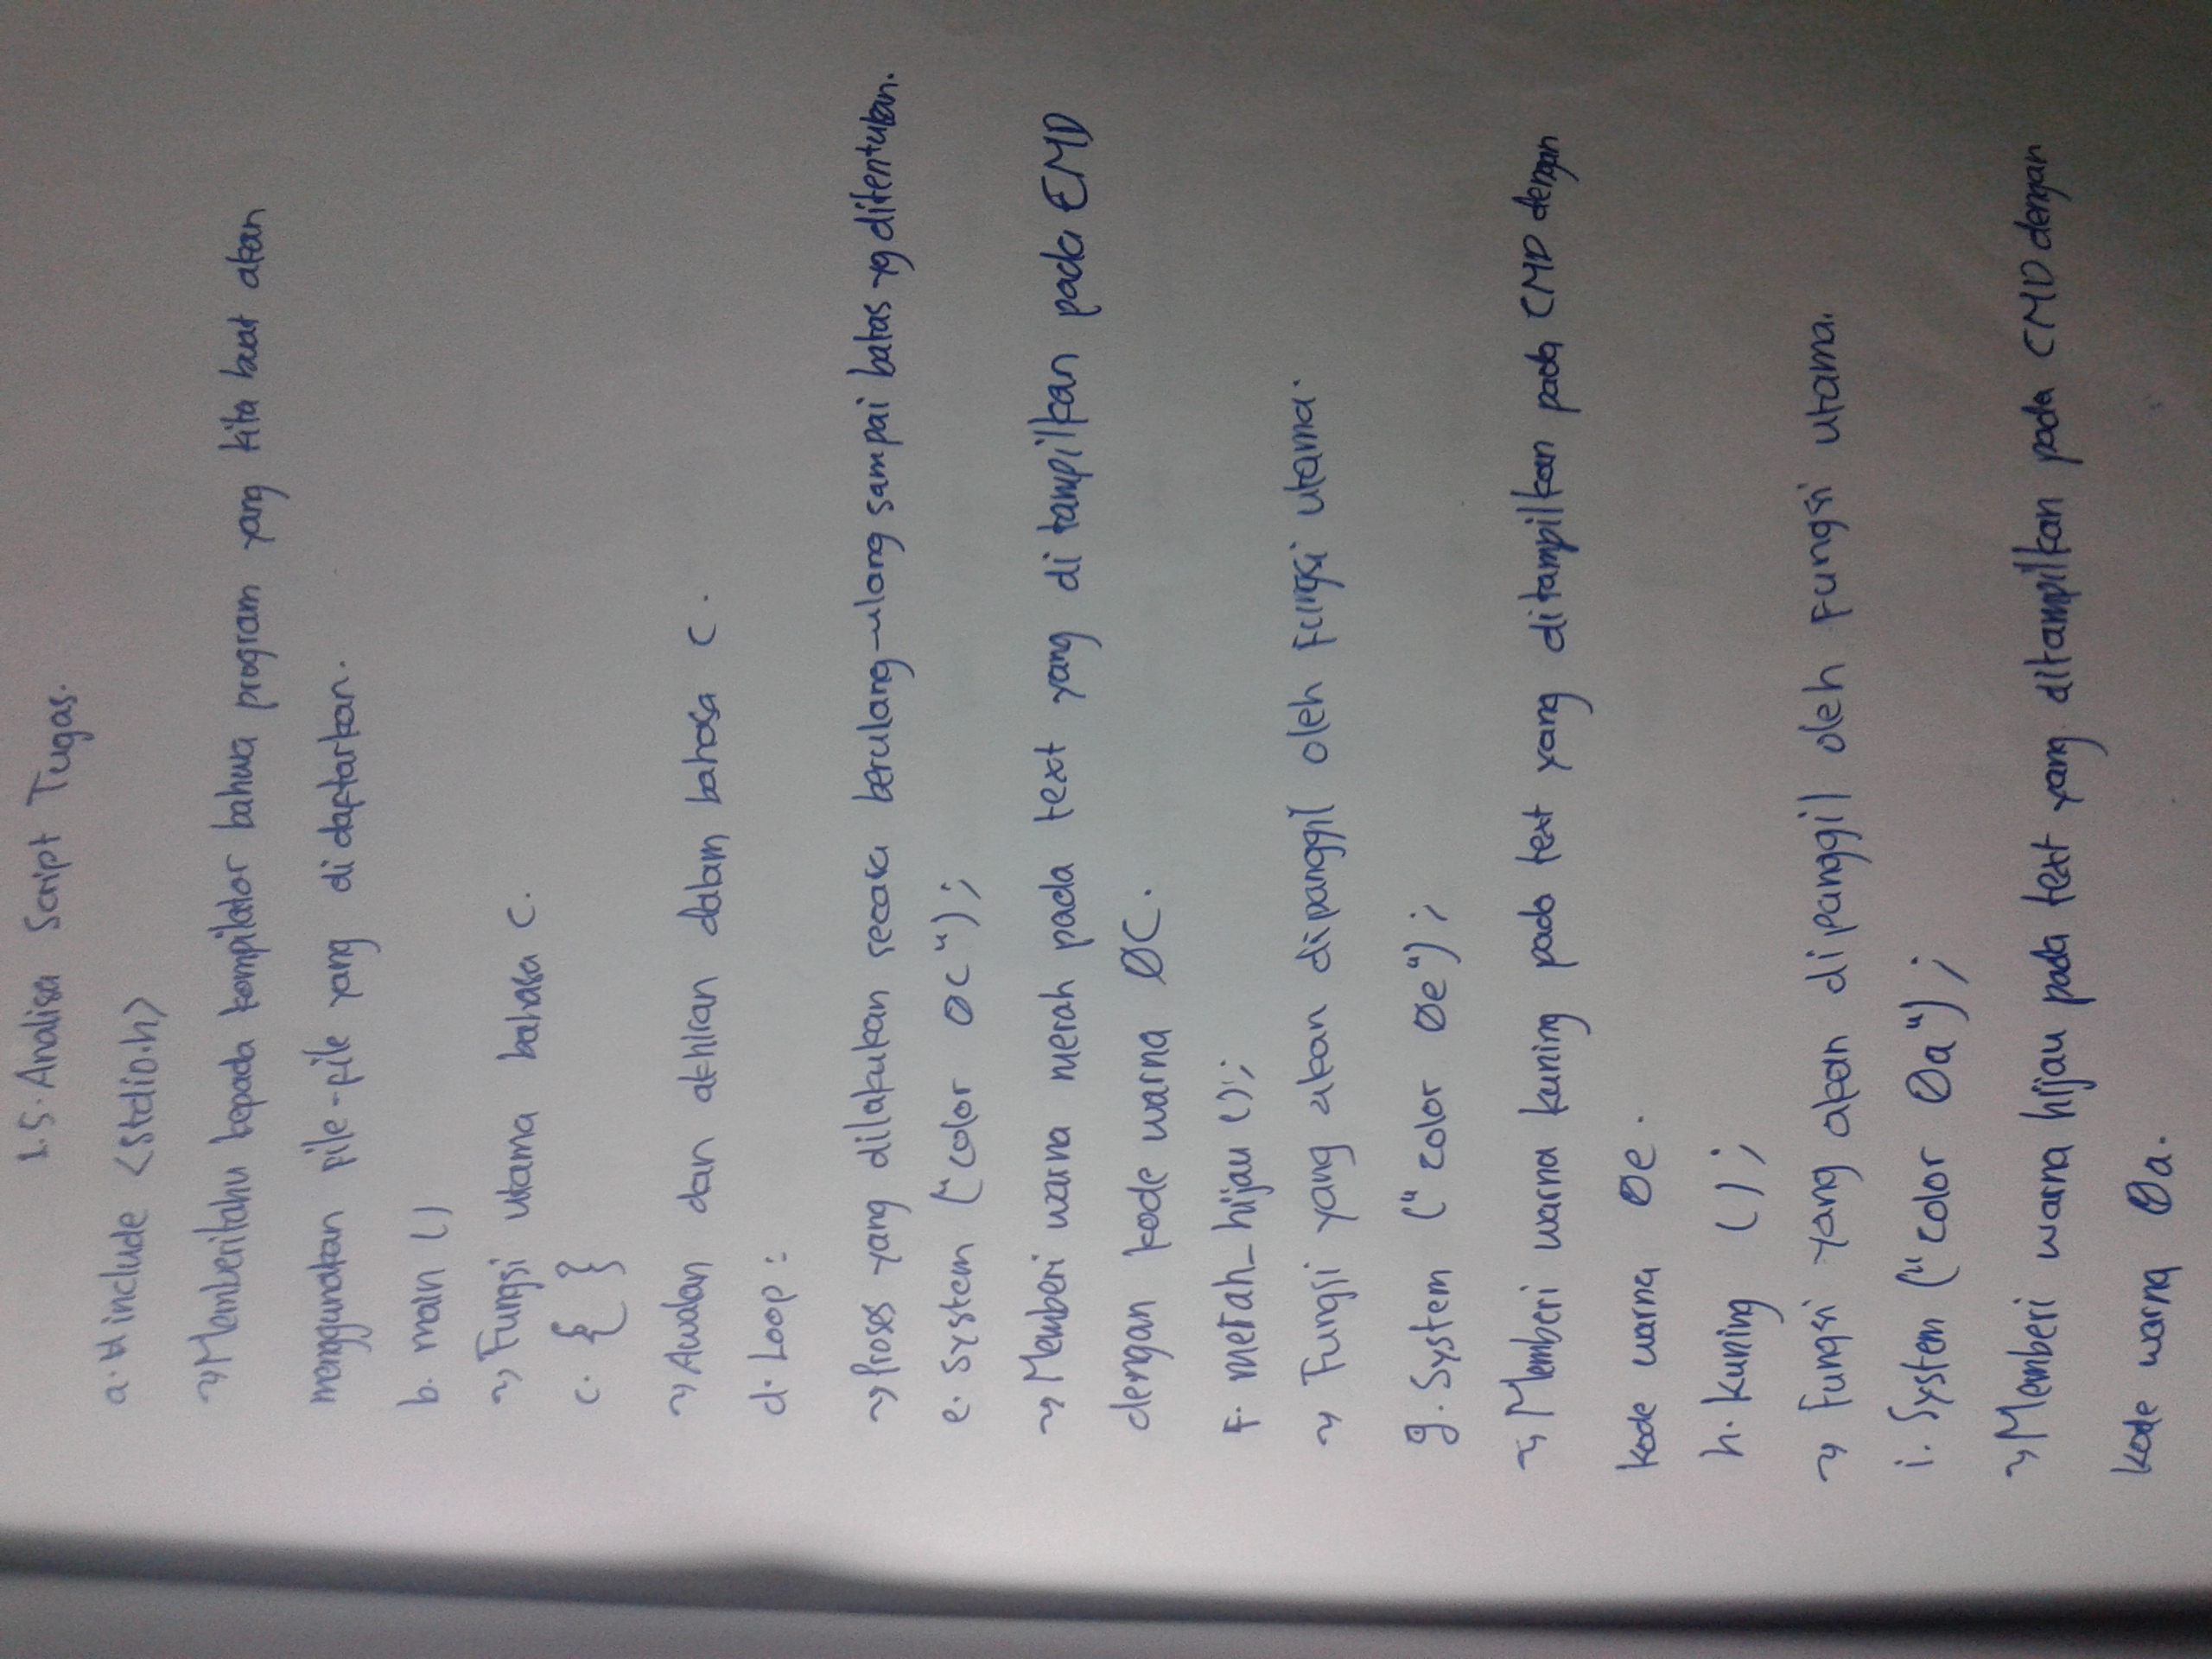 1.5. Analisa Script Tugas.
a. #include <stdio.h>
→ Memberitahu kepada kompilator bahwa program yang kita buat akan
menggunakan file-file yang di daftarkan.
b. main ()
→ Fungsi utama bahasa C.
c. { }
→ Awalan dan akhiran dalam bahasa C.
d. Loop :
→ Proses yang dilakukan secara berulang-ulang sampai batas yg ditentukan.
e. System ("color 0C");
→ Memberi warna merah pada text yang di tampilkan pada CMD
dengan kode warna 0C.
F. merah_hijau ();
→ Fungsi yang akan dipanggil oleh fungsi utama.
g. System ("color 0e");
→ Memberi warna kuning pada text yang ditampilkan pada CMD dengan
kode warna 0e.
h. kuning ();
→ Fungsi yang akan dipanggil oleh fungsi utama.
i. System ("color 0a");
→ Memberi warna hijau pada text yang ditampilkan pada CMD dengan
kode warna 0a.